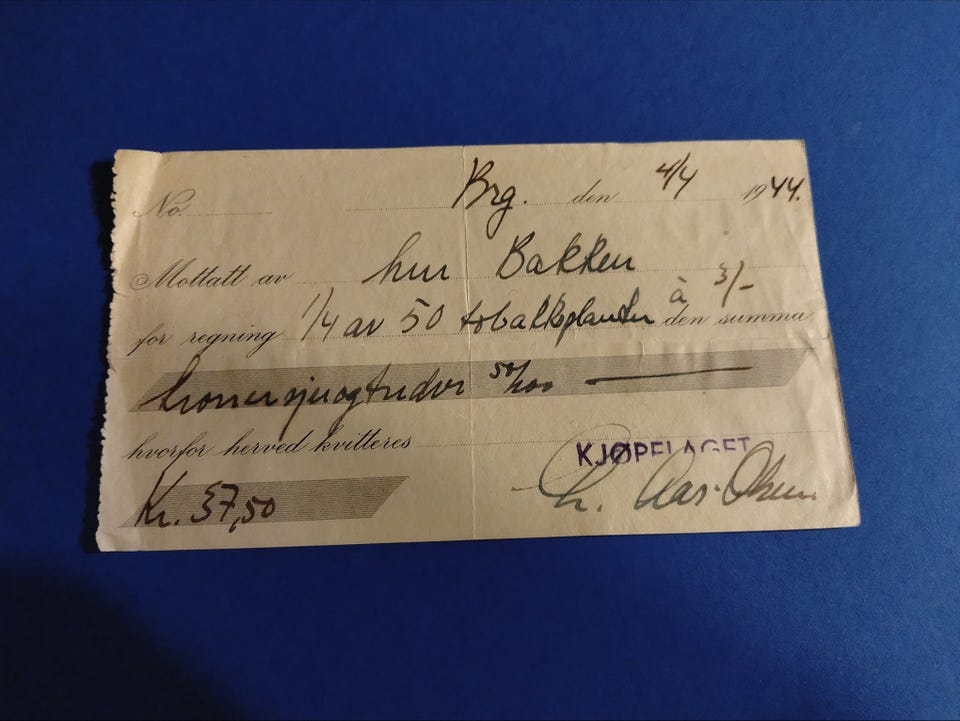 No. Brg. den 4/4 1944.
Mottatt av herr Bakken
for regning 1/4 av 50 tobakksplanter à 3/- den summa
kroner sjuogtredve 50/100
hvorfor herved kvitteres
KJØPELAGET
Kr. 37,50
Aas-Olsen